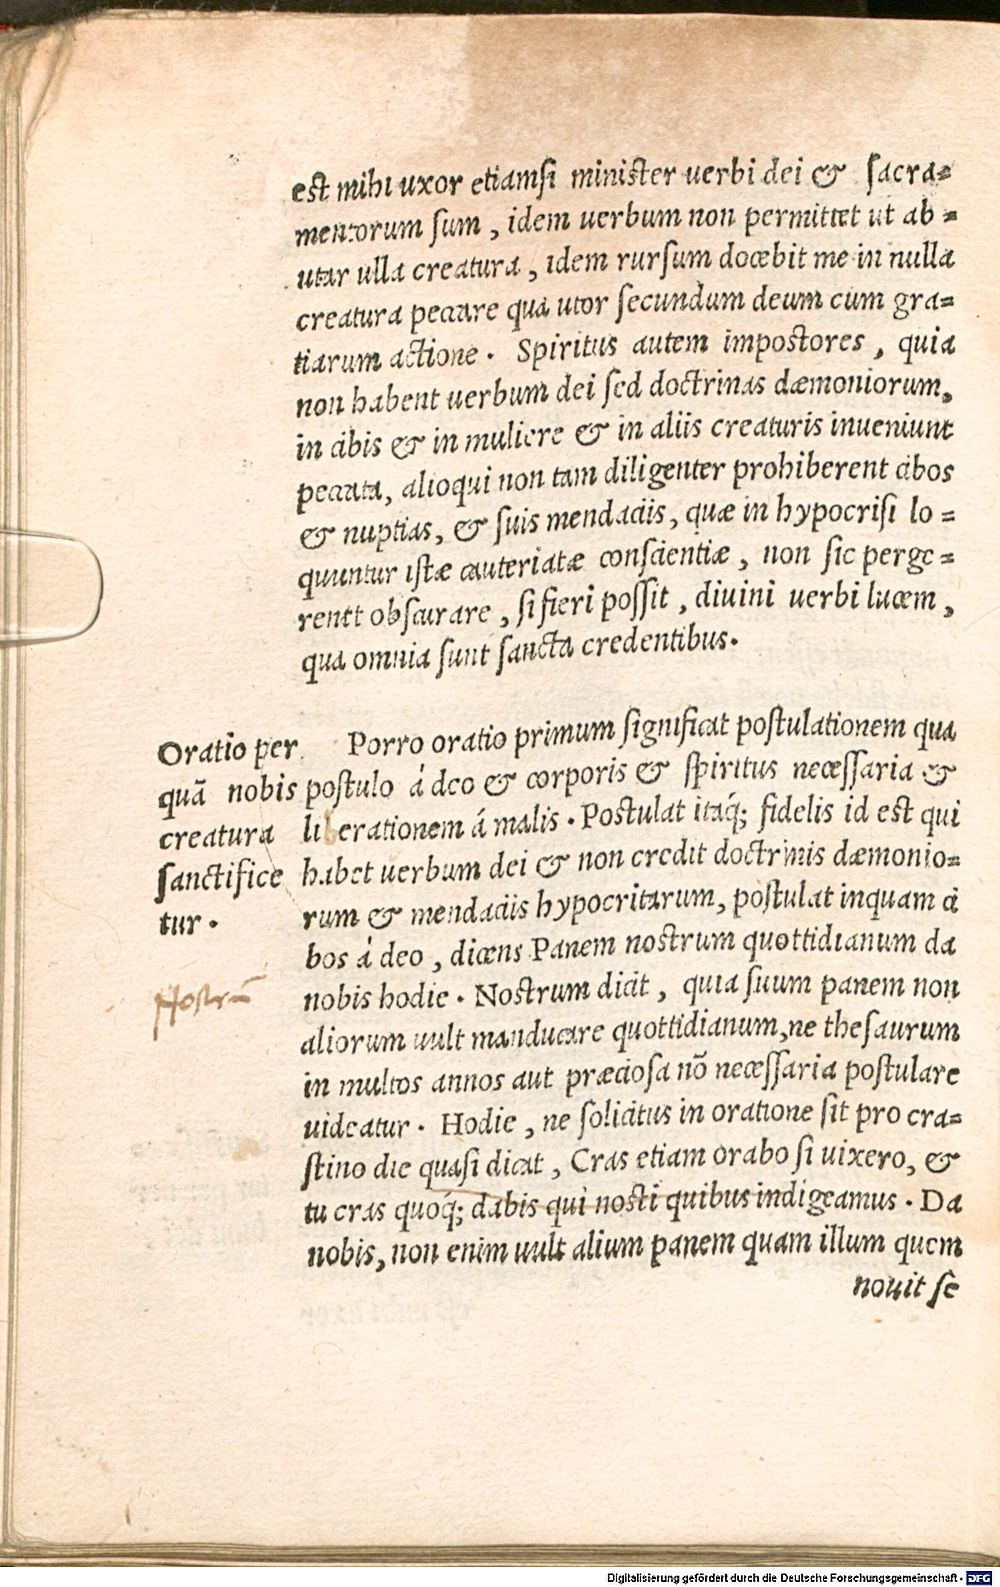 est mihi uxor etiamsi minister uerbi dei & sacra=
mentorum sum, idem uerbum non permittet ut ab=
utar ulla creatura, idem rursum docebit me in nulla
creatura peccare qua utor secundum deum cum gra=
tiarum actione. Spiritus autem impostores, quia
non habent uerbum dei sed doctrinas dæmoniorum,
in cibis & in muliere & in aliis creaturis inueniunt
peccata, alioqui non tam diligenter prohiberent cibos
& nuptias, & suis mendaciis, quæ in hypocrisi lo=
quuntur istæ cauteriatæ conscientiæ, non sic perge=
rent obscurare, si fieri possit, diuini uerbi lucem,
qua omnia sunt sancta credentibus.
Oratio per
quā nobis
creatura
sanctifice
tur.
Porro oratio primum significat postulationem qua
postulo á deo & corporis & spiritus necessaria &
liberationem á malis. Postulat itaq́; fidelis id est qui
habet uerbum dei & non credit doctrinis dæmonio=
rum & mendaciis hypocritarum, postulat inquam ci
bos á deo, dicens Panem nostrum quottidianum da
nobis hodie. Nostrum dicit, quia suum panem non
Nostrū
aliorum uult manducare quottidianum, ne thesaurum
in multos annos aut præciosa nō necessaria postulare
uideatur. Hodie, ne solicitus in oratione sit pro cra=
stino die quasi dicat, Cras etiam orabo si uixero, &
tu cras quoq́; dabis qui nosti quibus indigeamus. Da
nobis, non enim uult alium panem quam illum quem
nouit se
Digitalisierung gefördert durch die Deutsche Forschungsgemeinschaft - DFG